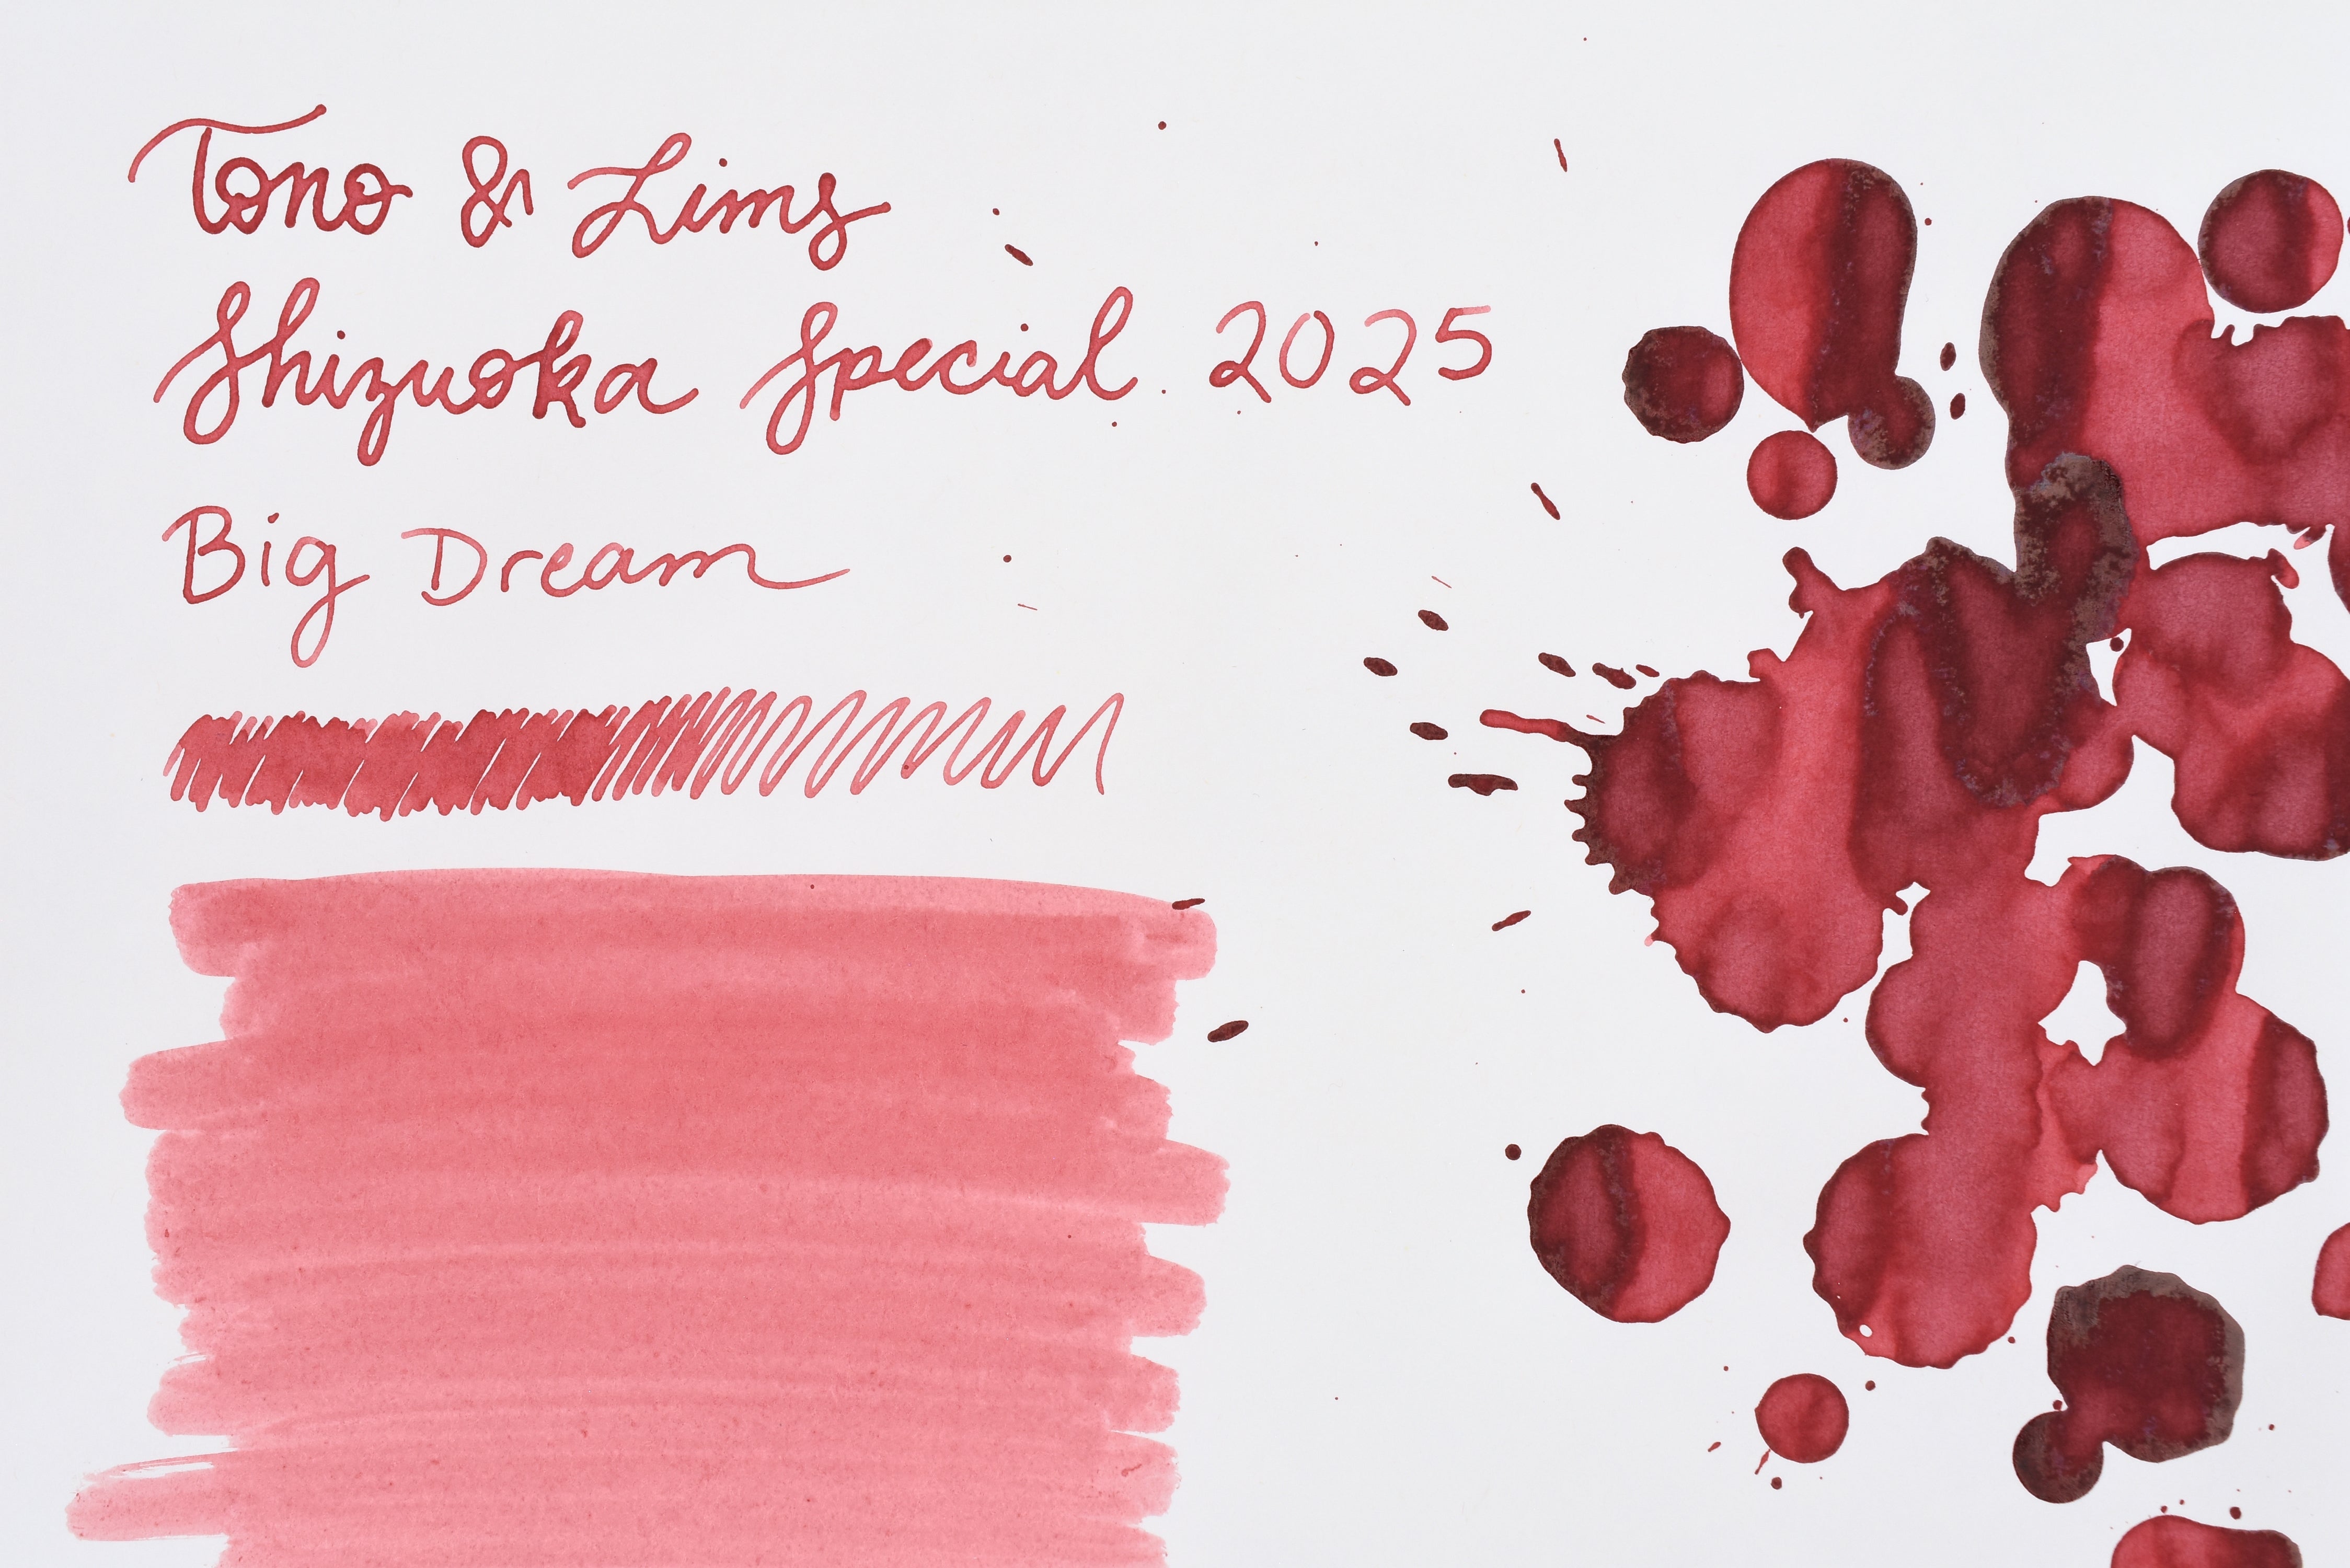 Tono & Lims
Shizuoka Special 2025
Big Dream